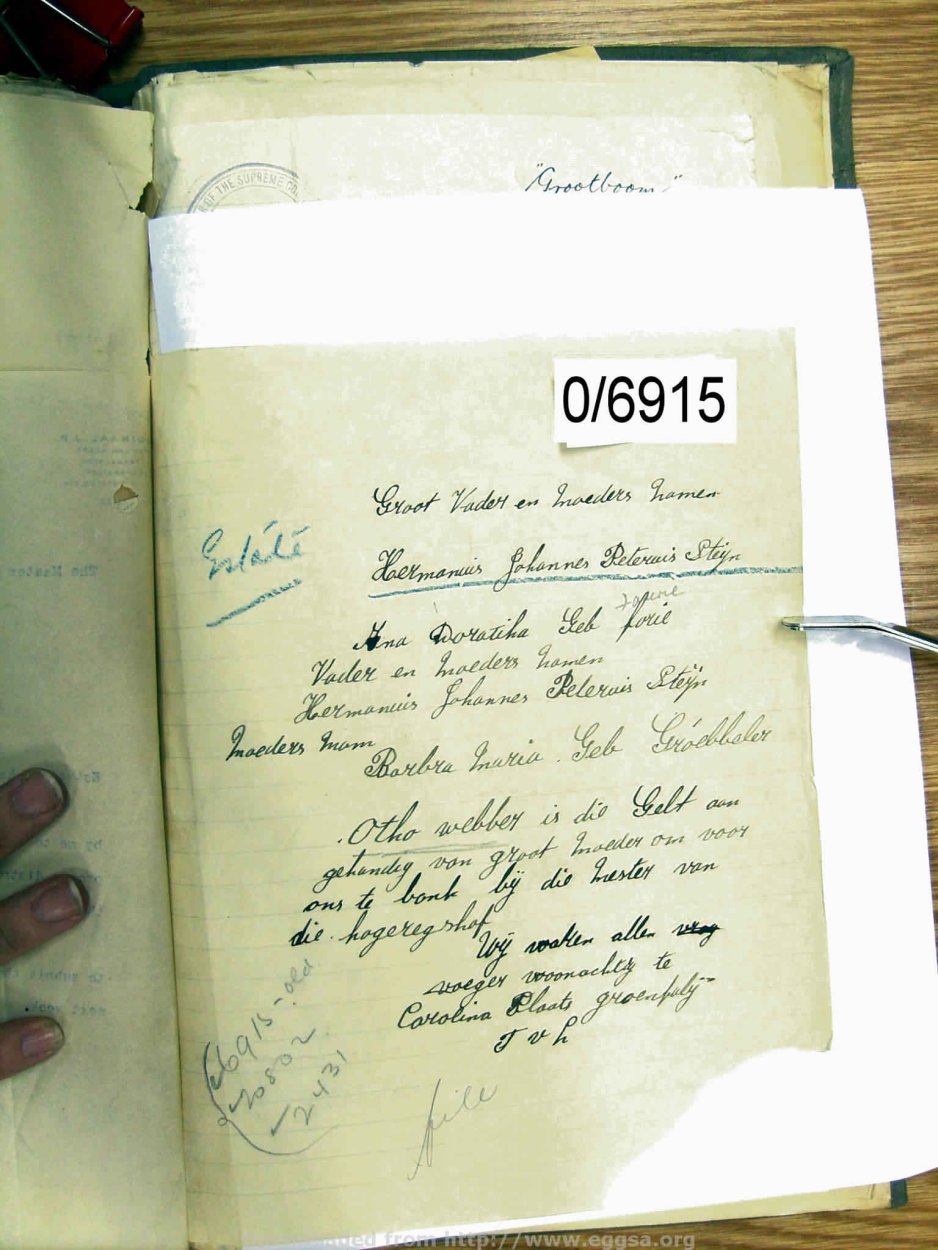 OF THE SUPREME CO
"Grootboom"
0/6915
Groot Vader en moeders namen
Estate
Hermanus Johannes Peterus Steÿn
Fourie
Ana Doratiha Geb forie
Vader en moeders namen
Hermanus Johannes Peterus Steÿn
Moeders mam
Barbra Maria. Geb Gróebbeler
Otho webber is die Gelt aan
gehandig van groot moeder om voor
ons te bank bÿ die mester van
die hogeregshof
Wÿ waren allen vrog
vroeger woonachtig te
Carolina Plaats
T v L
6915 - old
20802
2431
file
from http://www.eggsa.org